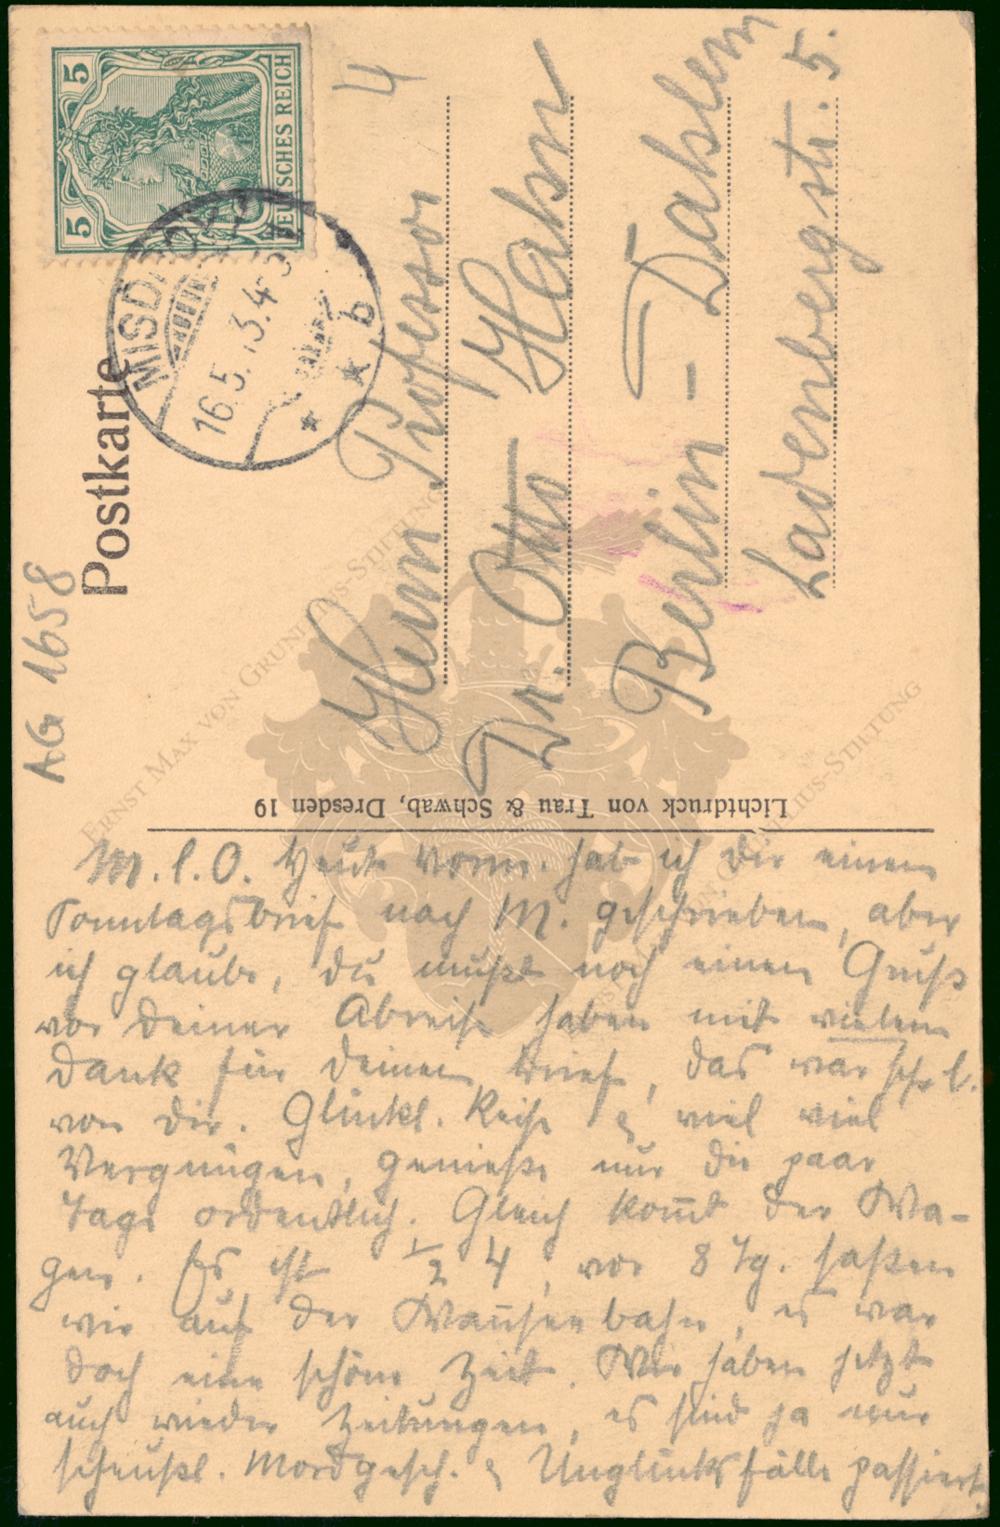 AG 1658
Postkarte
5 5
DEUTSCHES REICH
MISDROY
16.5.13.4-5
* * b
4
Herrn Professor
Dr. Otto Hahn
Berlin - Dahlem
Ladenbergstr. 5.
Lichtdruck von Trau & Schwab, Dresden 19
ERNST MAX VON GRUNELIUS-STIFTUNG
M. l. O. Heute Vorm. hab ich dir einen
Sonntagsbrief nach M. geschrieben, aber
ich glaube, du mußt noch einen Gruß
vor deiner Abreise haben mit vielem
Dank für deinen Brief, das war sehr l.
von dir. Glückl. Reise & viel viel
Vergnügen, genieße nur die paar
Tage ordentlich. Gleich kom̅t der Wa-
gen. Es ist ½ 4, vor 8 Tg. saßen
wir auf der, es war
doch eine schöne Zeit. Wir haben jetzt
auch wieder Zeitungen, es sind ja nur
scheußl. Mordgesch. & Unglücksfälle passiert.